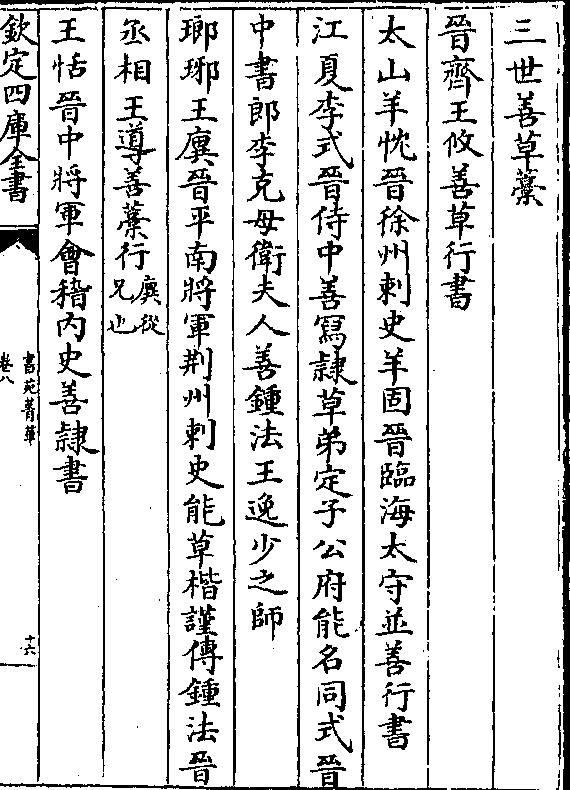 三世善草藳
晉齊王攸善草行書
太山羊忱晉徐州刺史羊固晉臨海太守並善行書
江夏李式晉侍中善寫隷草弟定子公府能名同式晉
中書郎李充母衛夫人善鍾法王逸少之師
瑯琊王廙晉平南將軍荆州刺史能草楷謹傳鍾法晉
丞相王導善藳行廙從兄也
王恬晉中將軍會稽内史善隷書
欽定四庫全書
書苑菁華
卷八
十六